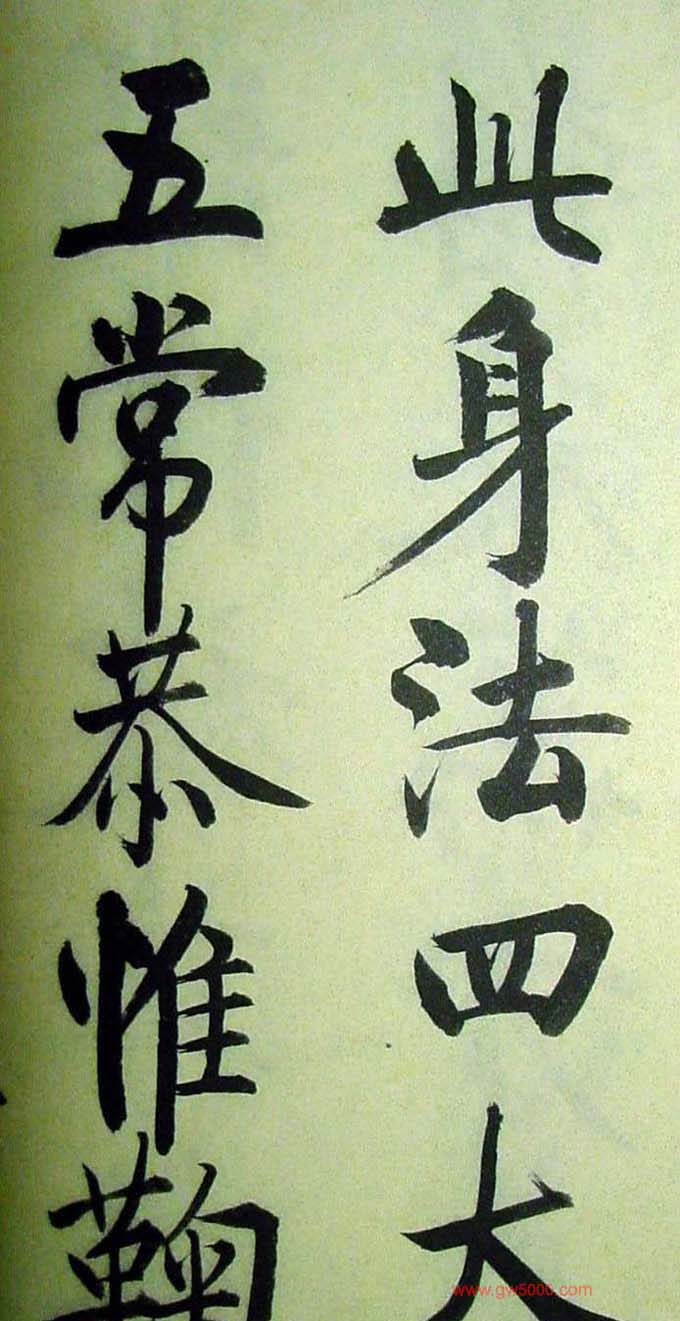 此身法四大
五常恭惟鞠
www.gw5000.com